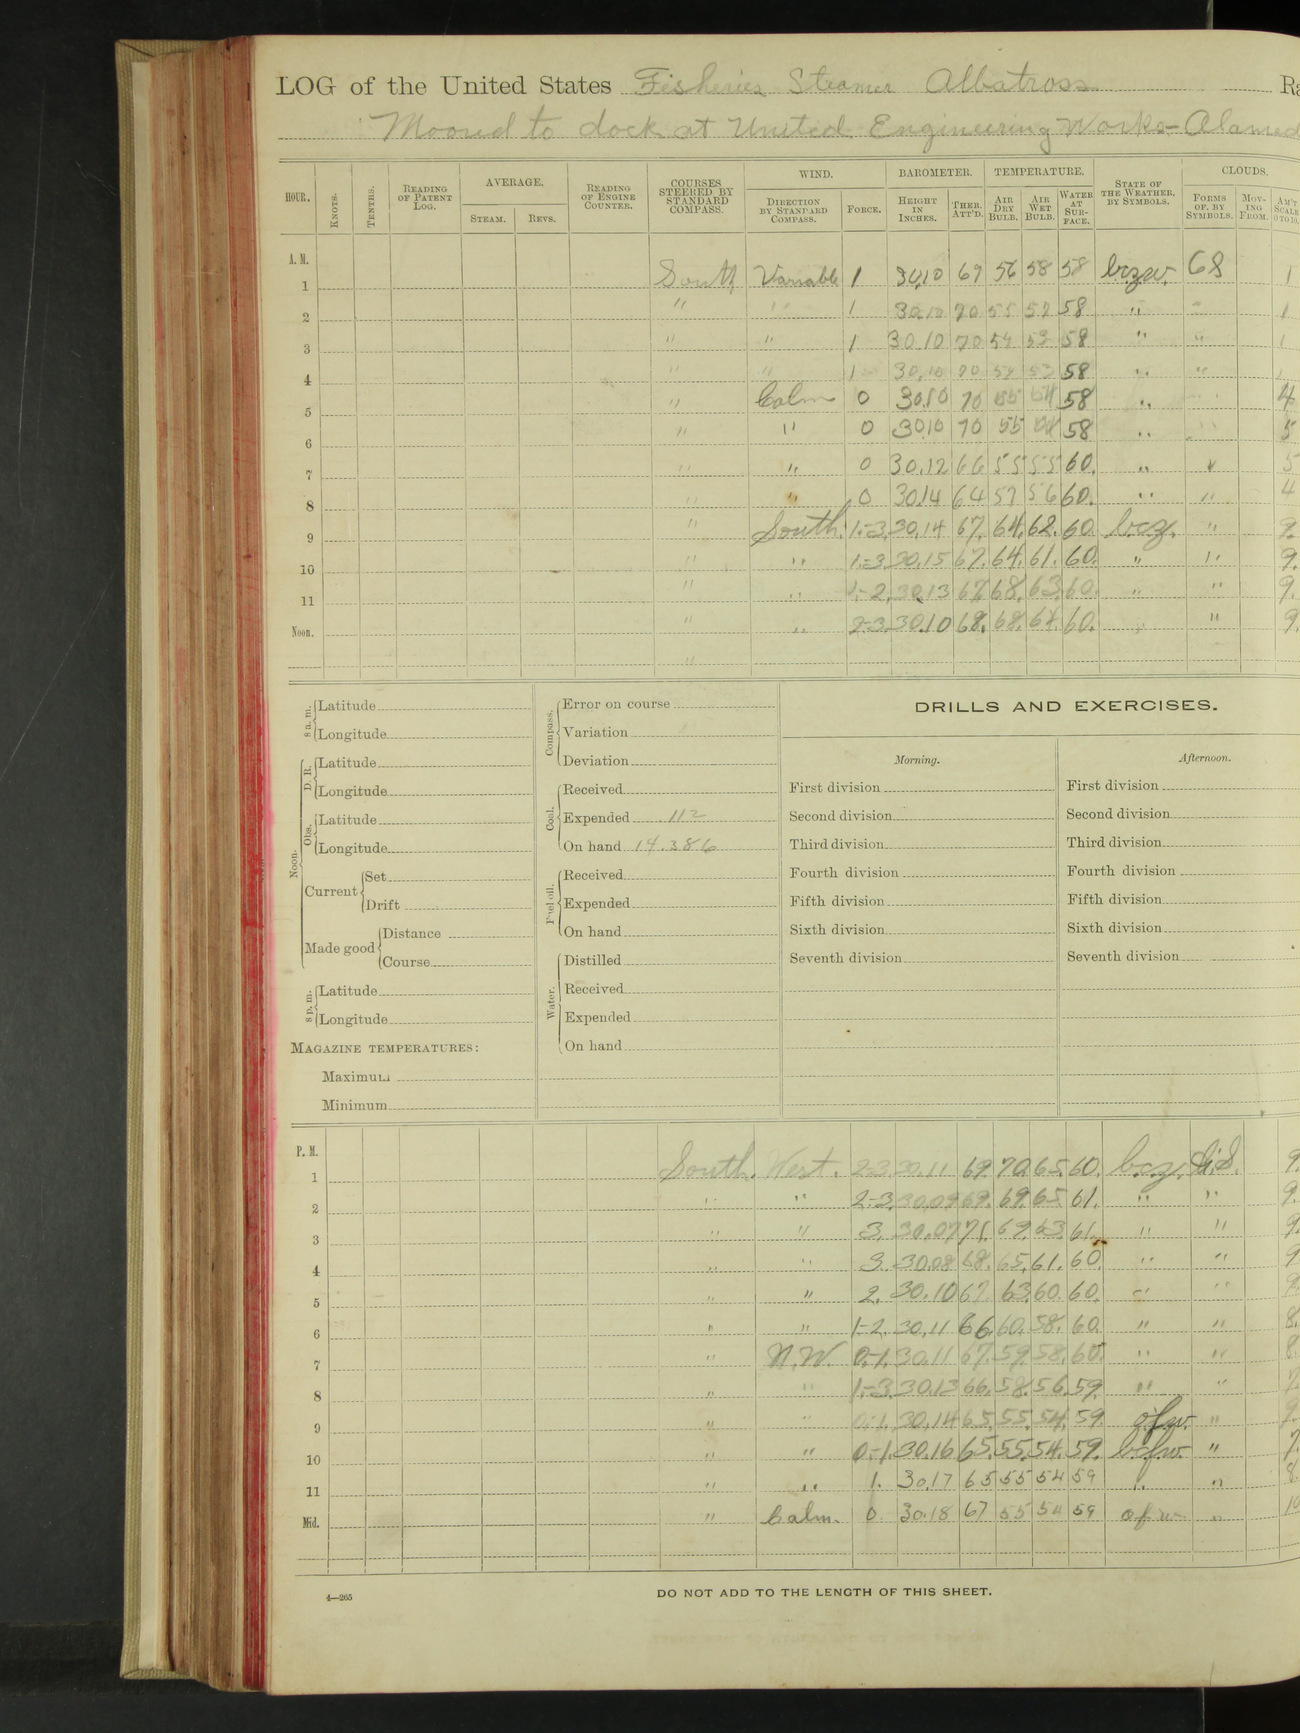 LOG of the United States Fisheries Steamer Albatross
Moored to dock at United Engineering Works - Alamed
HOUR. KNOTS. TENTHS. READING OF PATENT LOG. AVERAGE. STEAM. REVS. READING OF ENGINE COUNTER. COURSES STEERED BY STANDARD COMPASS. WIND. DIRECTION BY STANDARD COMPASS. FORCE. BAROMETER. HEIGHT IN INCHES. THER. ATT'D. TEMPERATURE. AIR DRY BULB. AIR WET BULB. WATER AT SURFACE. STATE OF THE WEATHER, BY SYMBOLS. CLOUDS. FORMS OF, BY SYMBOLS. MOVING FROM. AM'T SCALE 0 TO 10.
A. M.
1 South Variable 1 30.10 69 56 58 58 bczw. 1
2 " " 1 30.10 70 55 58 " " 1
3 " " 1 30.10 70 54 53 58 " " 1
4 " " 1 30.10 70 54 53 58 " "
5 " Calm 0 30.10 70 55 54 58 " 4
6 " " 0 30.10 70 55 54 58 " " 5
7 " " 0 30.12 66 55 55 60. " " 5
8 " " 0 30.14 64 57 56 60. " " 4
9 " South. 1.-3. 30.14 67. 64. 62. 60 bcz. " 9.
10 " " 1.-3. 30.15 67. 64. 61. 60. " " 9.
11 " " 1.-2. 30.13 67. 68. 63. 60. " " 9.
Noon. " " 2-3. 30.10 68. 68. 64. 60. " " 9.
"
8 a. m. Latitude
Longitude
Noon. D. R. Latitude
Longitude
Obs. Latitude
Longitude
Current Set
Drift
Made good Distance
Course
8 p. m. Latitude
Longitude
MAGAZINE TEMPERATURES:
Maximum
Minimum
Compass. Error on course
Variation
Deviation
Coal. Received
Expended 112
On hand 14.386
Fuel oil. Received
Expended
On hand
Water. Distilled
Received
Expended
On hand
DRILLS AND EXERCISES.
Morning.
First division
Second division
Third division
Fourth division
Fifth division
Sixth division
Seventh division
Afternoon.
First division
Second division
Third division
Fourth division
Fifth division
Sixth division
Seventh division
P. M.
1 South. West. 2-3. 30.11 69. 70. 65. 60. bcz. 9.
2 " " 2-3. 30.09 69. 69. 65. 61. " " 9.
3 " " 3. 30.07 71. 69. 63. 61. " " 9.
4 " " 3. 30.08 68. 65. 61. 60. " " 9
5 " " 2. 30.10 67. 63. 60. 60. " " 9.
6 " " 1-2. 30.11 66. 60. 58. 60. " " 8.
7 " N.W. 0-1. 30.11 67. 59. 58. 60. " " 8.
8 " " 1.-3. 30.13 66. 58. 56. 59. " " 7.
9 " " 0-1. 30.14 65. 55. 54. 59. " 9.
10 " " 0-1. 30.16 65. 55. 54. 59. bcfw. " 7.
11 " " 1. 30.17 65 55 54 59 " " 8
Mid. " Calm. 0 30.18 67 55 54 59 ofw " 10
4—265 DO NOT ADD TO THE LENGTH OF THIS SHEET.